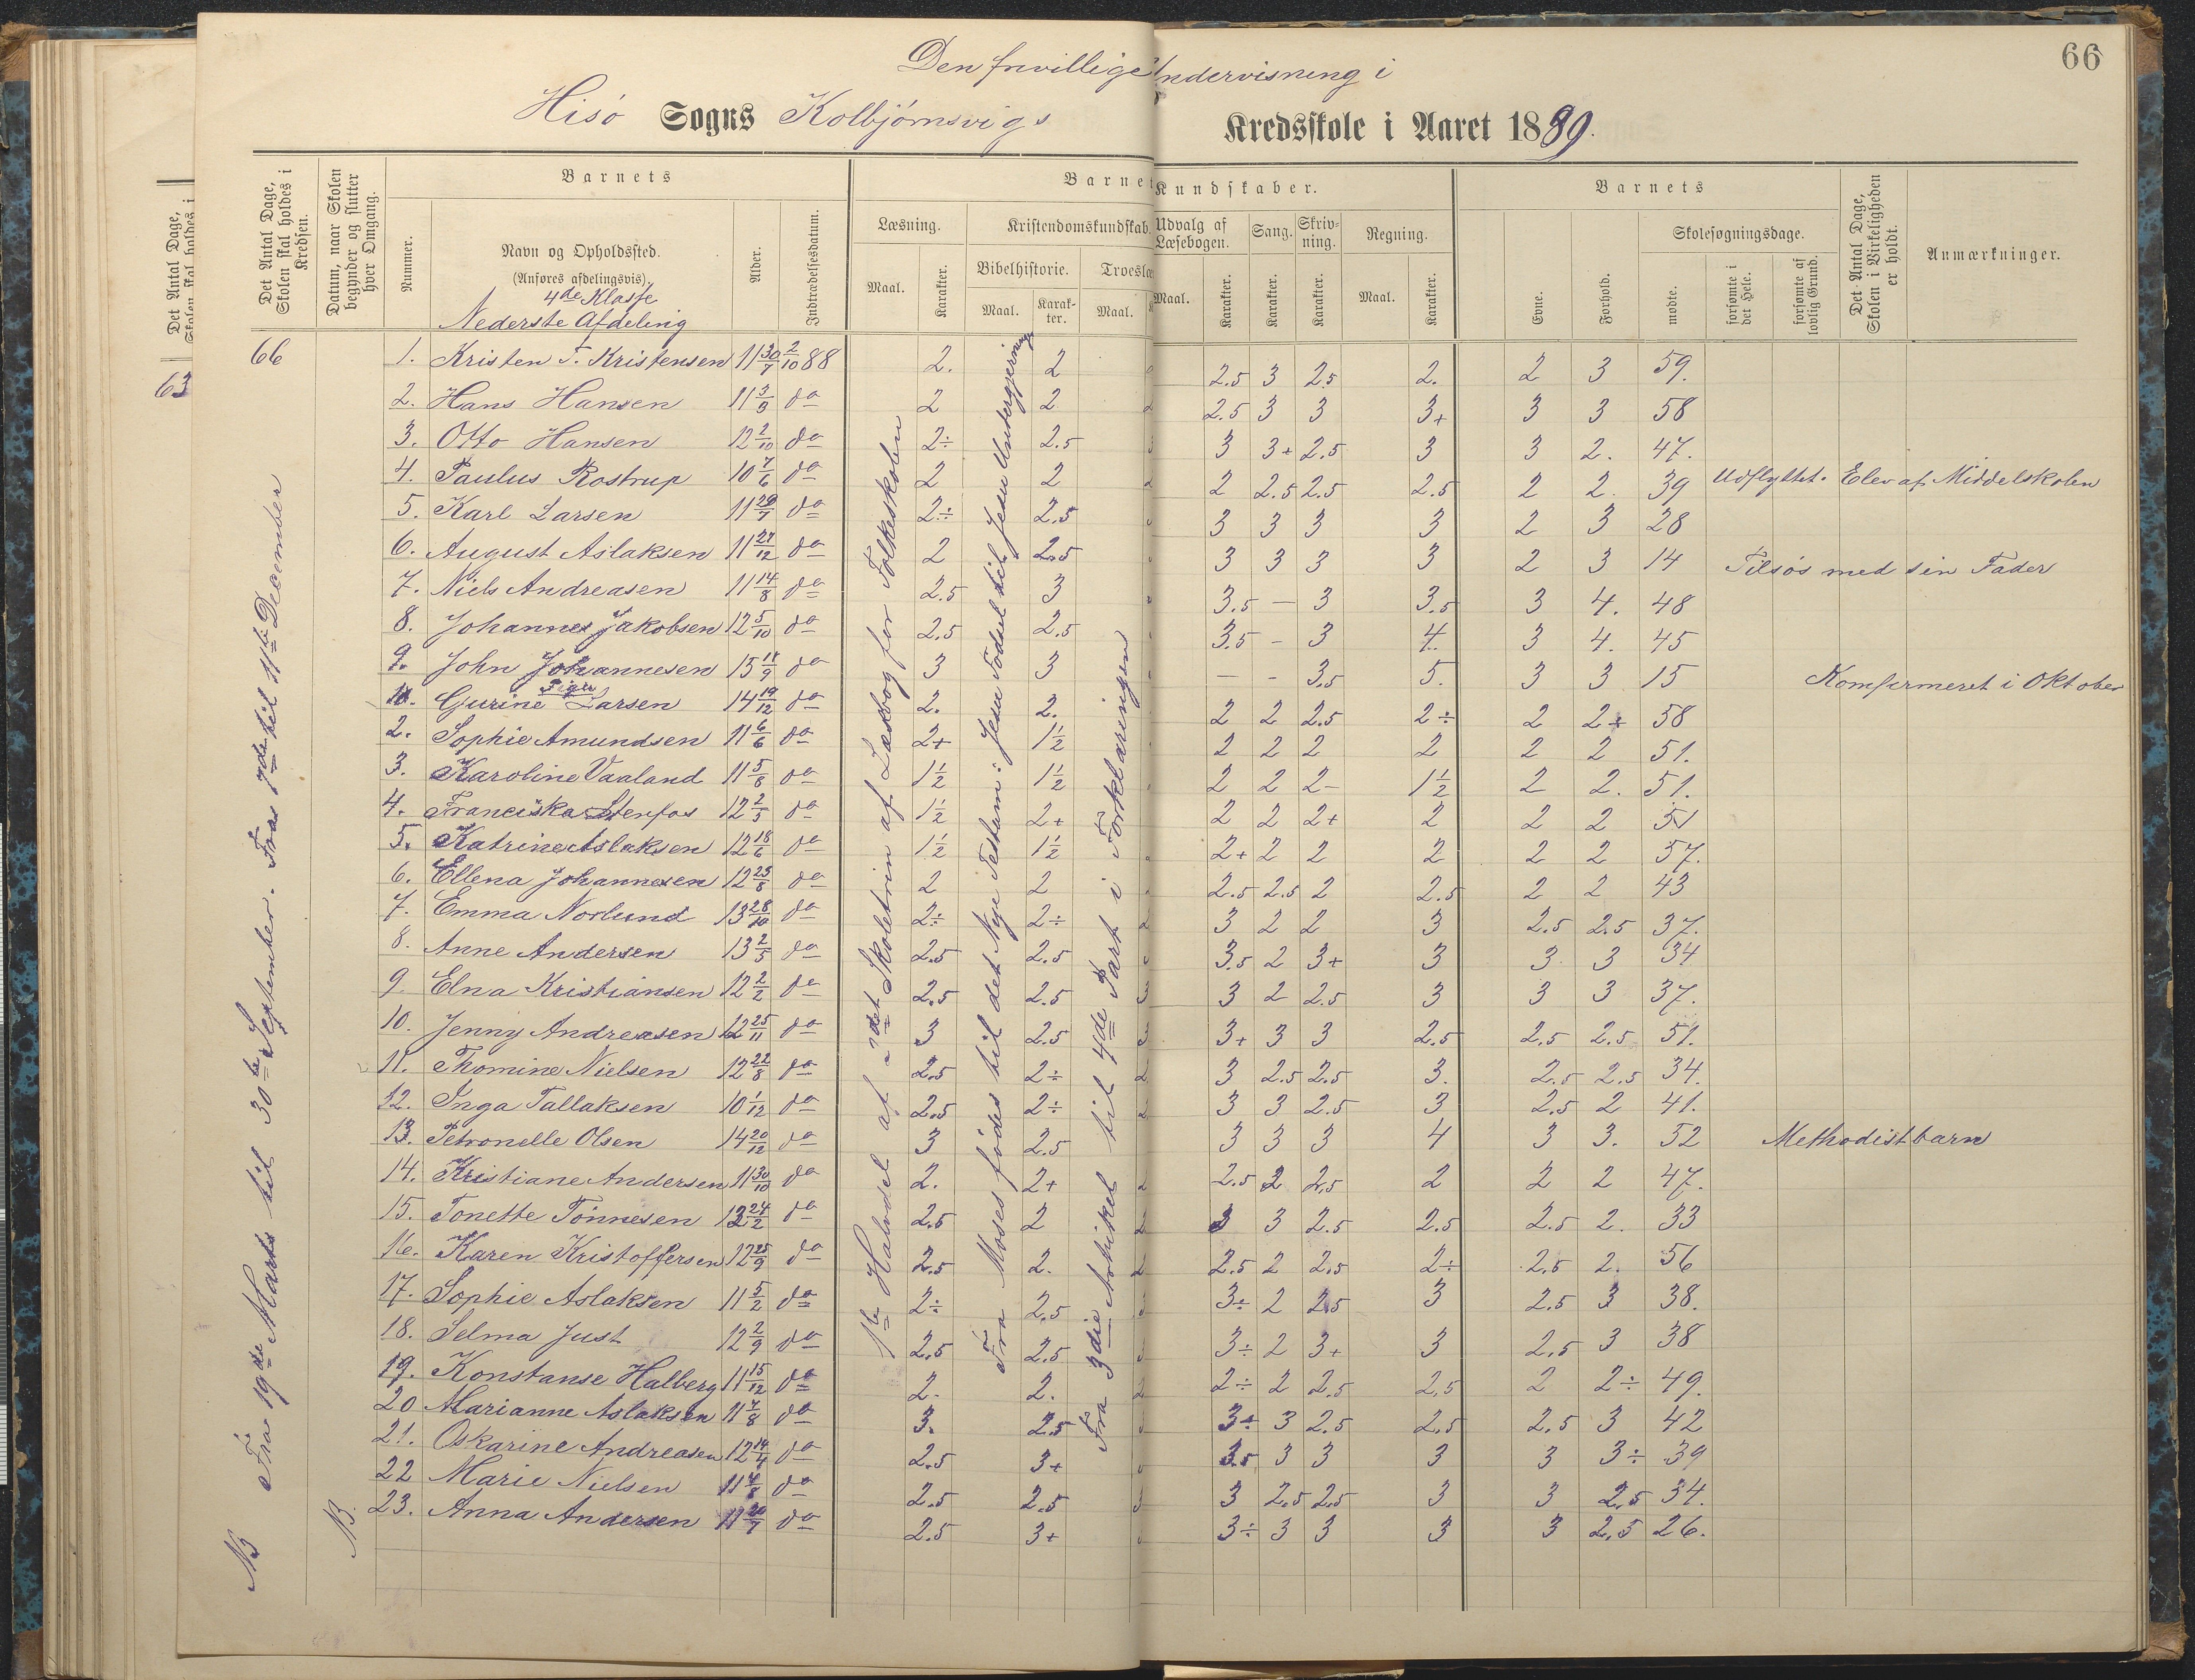 66
Den frivillige Undervisning i
Hisø Sogns Kolbjørnsvigs Kredsskole i Aaret 1889.
Det Antal Dage, Skolen skal holdes i Kredsen.
Datum, naar Skolen begynder og slutter hver Omgang.
Barnets
Nummer.
Navn og Opholdssted.
(Anføres afdelingsvis).
4de Klasse
Nederste Afdeling
Alder.
Indtrædelsesdatum.
Barnets Kundskaber.
Læsning.
Maal.
Karakter.
Kristendomskundskab.
Bibelhistorie.
Maal.
Karakter.
Troeslæ
Maal.
Udvalg af Læsebogen.
Maal.
Karakter.
Sang.
Karakter.
Skrivning.
Karakter.
Regning.
Maal.
Karakter.
Barnets
Evne.
Forhold.
Skolesøgningsdage.
mødte.
forsømte i det Hele.
forsømte af lovlig Grund.
Det Antal Dage, Skolen i Virkeligheden er holdt.
Anmærkninger.
Det Antal Dage,
Skolen skal holdes i
63
66
NB Fra 19de Marts til 30te September. Fra 7de til 11te December
NB.
1ste Halvdel af 2det Skoletrin af Læsebog for Folkeskolen
Fra Moses fødes til det Nye Testam: Jesu Fødsel til Jesu Undergjerninger
Fra 3die Artikel til 4de Part i Forklaringen
1. Kristen T. Kristensen 11 30/7 2/10 88 2. 2 2.5 3 2.5 2. 2 3 59.
2. Hans Hansen 11 3/9 do 2 2 2.5 3 3 3+ 3 3 58
3. Otto Hansen 12 2/10 do 2÷ 2.5 3 3+ 2.5 3 3 2. 47.
4. Paulus Rostrup 10 7/6 do 2 2 2 2.5 2.5 2.5 2 2. 39 Udflyttet. Elev af Middelskolen
5. Karl Larsen 11 29/7 do 2÷ 2.5 3 3 3 3 2 3 28
6. August Aslaksen 11 27/12 do 2 2.5 3 3 3 3 2 3 14 Tilsøs med sin Fader
7. Niels Andreasen 11 14/8 do 2.5 3 3.5 — 3 3.5 3 4. 48
8. Johannes Jakobsen 12 5/10 do 2.5 2.5 3.5 - 3 4. 3 4. 45
9. John Johannesen 15 18/9 do 3 3 — - 3.5 5. 3 3 15 Konfirmeret i Oktober
Piger
1. Gurine Larsen 14 19/12 do 2. 2. 2 2 2.5 2÷ 2 2÷ 58
2. Sophie Amundsen 11 6/6 do 2+ 1½ 2 2 2 2 2 2 51.
3. Karoline Vaaland 11 5/8 do 1½ 1½ 2 2 2- 1½ 2 2. 51.
4. Franciska Stenfos 12 2/5 do 1½ 2+ 2 2 2+ 2 2 2 51
5. Katrine Aslaksen 12 18/6 do 1½ 1½ 2+ 2 2 2 2 2 57.
6. Ellena Johannesen 12 25/8 do 2 2 2.5 2.5 2 2.5 2 2 43
7. Emma Norlund 13 28/10 do 2÷ 2÷ 3 2 2 3 2.5 2.5 37.
8. Anne Andersen 13 2/5 do 2.5 2.5 3.5 2 3+ 3 3 3 34
9. Elna Kristiansen 12 2/2 do 2.5 2.5 3 2 2.5 3 3 3 37.
10. Jenny Andreasen 12 25/11 do 3 2.5 3+ 3 3 2.5 2.5 2.5 51.
11. Thomine Nielsen 12 22/8 do 2.5 2÷ 3 2.5 2.5 3. 2.5 2.5 34.
12. Inga Tallaksen 10 1/12 do 2.5 2÷ 3 3 2.5 3 2.5 2 41.
13. Petronelle Olsen 14 20/12 do 3 2.5 3 3 3 4 3 3. 52 Methodistbarn
14. Kristiane Andersen 11 30/10 do 2. 2+ 2.5 2 2.5 2 2 2 47.
15. Tonette Tønnesen 12 24/2 do 2.5 2 3 3 2.5 2.5 2.5 2. 33
16. Karen Kristoffersen 12 25/9 do 2.5 2. 2.5 2 2.5 2÷ 2.5 2. 56
17. Sophie Aslaksen 11 5/2 do 2÷ 2.5 3÷ 2 2.5 3 2.5 3 38.
18. Selma Just 12 2/9 do 2.5 2.5 3÷ 2 3+ 3 2.5 3 38
19. Konstanse Halberg 11 15/12 do 2. 2. 2÷ 2 2.5 2.5 2 2÷ 49.
20 Marianne Aslaksen 11 7/8 do 3. 2.5 3÷ 3 2.5 2.5 2.5 3 42
21. Oskarine Andreasen 12 14/4 do 2.5 3+ 3.5 3 3 3 3 3÷ 39
22 Marie Nielsen 11 4/8 do 2.5 2.5 3 2.5 2.5 3 3 2.5 34.
23. Anna Andersen 11 20/7 do 2.5 3+ 3÷ 3 3 3 3 2.5 26.